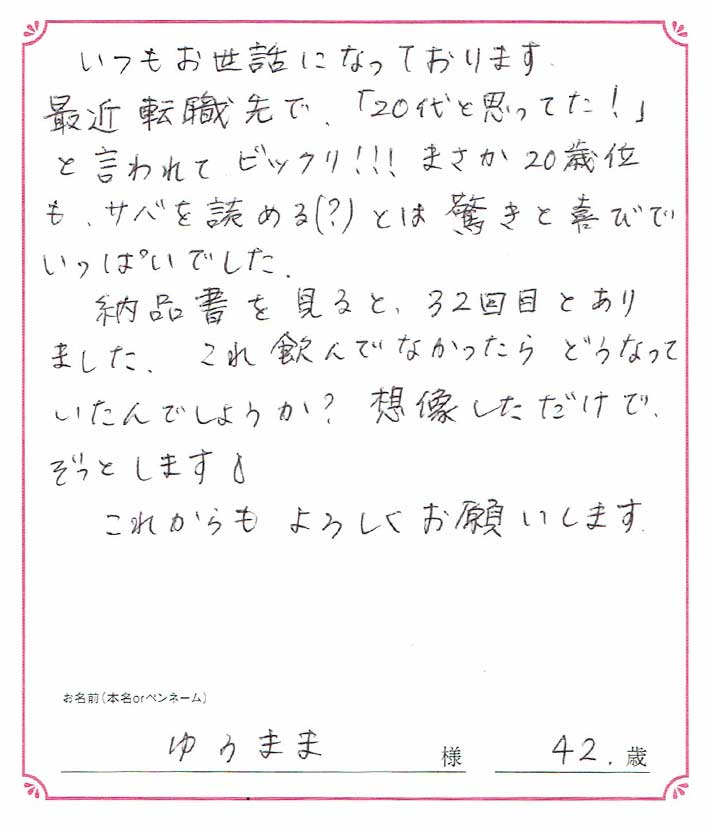 いつもお世話になっております.
最近転職先で、「20代と思ってた!」
と言われてビックリ!!! まさか20歳位
も、サバを読める(?)とは驚きと喜びで
いっぱいでした.
納品書を見ると、32回目とあり
ました. これ飲んでなかったらどうなって
いたんでしょうか? 想像しただけで、
ぞっとします
これからもよろしくお願いします.
お名前(本名orペンネーム)
ゆうまま 様 42.歳